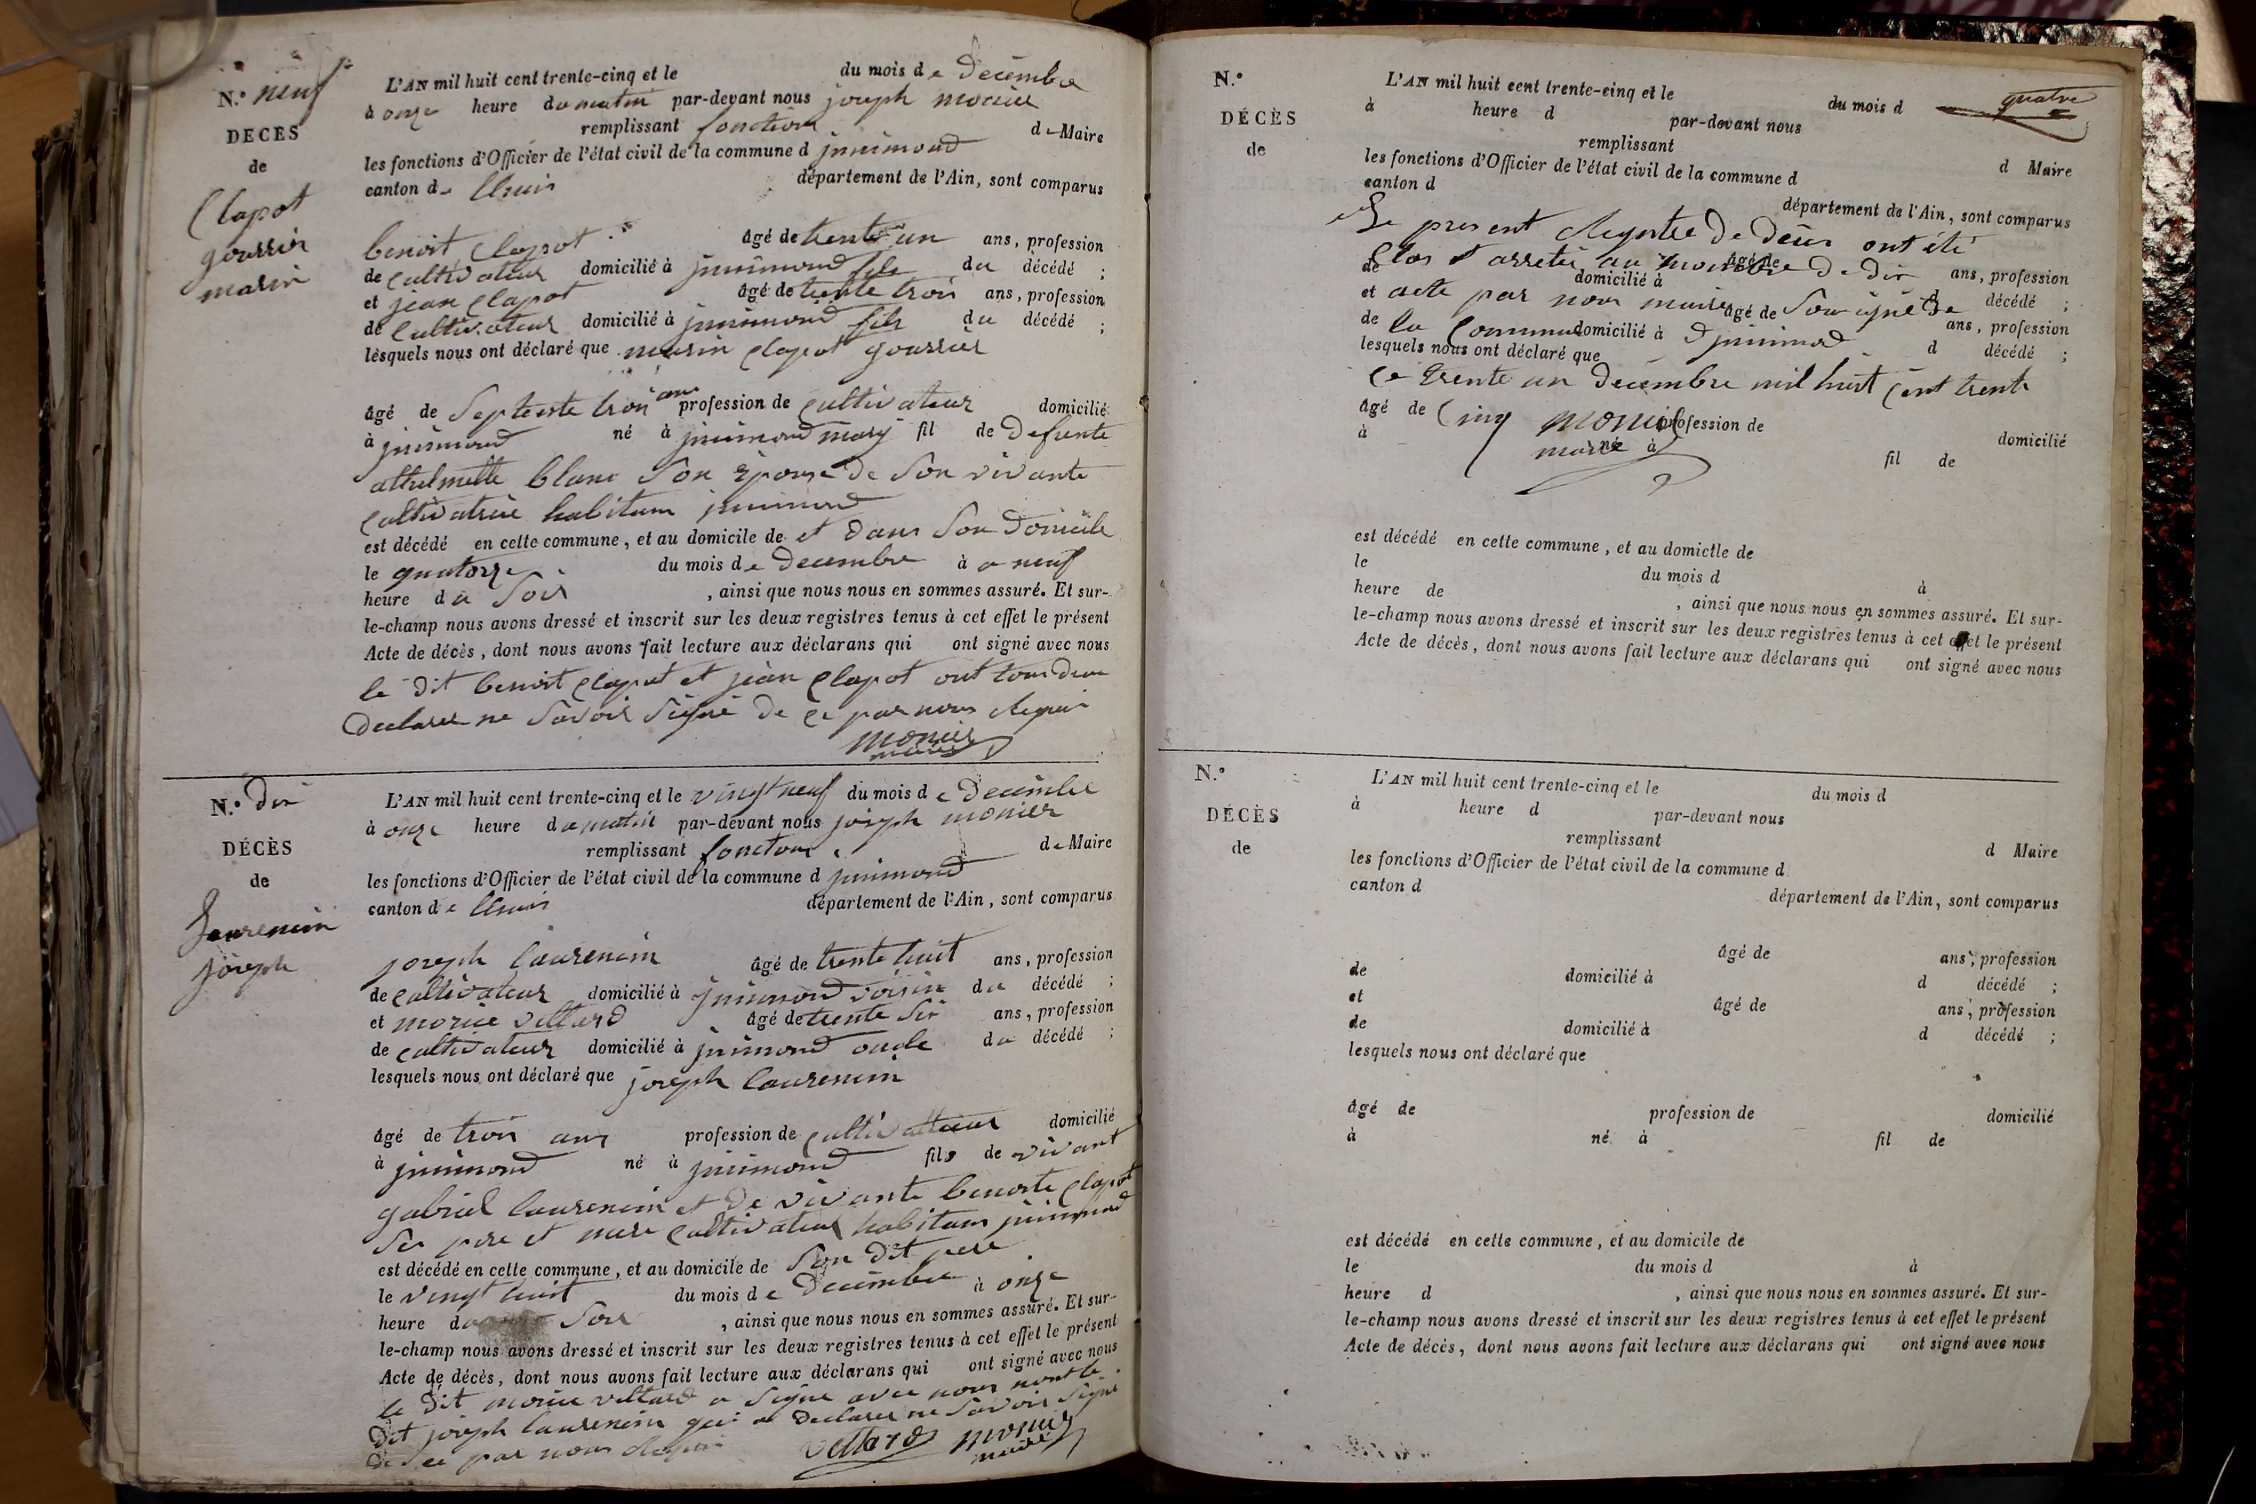 N.º neuf
DECES
de
Clapot
goursin
marin
L'AN mil huit cent trente-cinq et le du mois de decembre
à onze heure du matin par-devant nous joseph monier
remplissant fonction de Maire
les fonctions d'Officier de l'état civil de la commune d jnnimond
canton de lhuis département de l'Ain, sont comparus
benoit Clapot âgé de trente un ans, profession
de Cultivateur domicilié à jnnimond fils du décédé ;
et jean Clapot âgé de trente trois ans, profession
de Cultivateur domicilié à jnnimond fils du décédé ;
lesquels nous ont déclaré que marin Clapot goursin
âgé de Septente trois ans profession de Cultivateur domicilié
à jnnimond né à jnnimond mary fil de defunte
blanc Son Epouse de Son vivante
Cultivatrice habitant jnnimond
est décédé en cette commune, et au domicile de et dans Son Domicile
le quatorze du mois de decembre à a neuf
heure du Soir , ainsi que nous nous en sommes assuré. Et sur-
le-champ nous avons dressé et inscrit sur les deux registres tenus à cet effet le présent
Acte de décès, dont nous avons fait lecture aux déclarans qui ont signé avec nous
le dit benoit Clapot et jean Clapot ont tous deux
declarer ne Savoir Signé de ce par nous Requis
monier
maire
N.º dix
DÉCÈS
de
Laurencin
joseph
L'AN mil huit cent trente-cinq et le vingt neuf du mois de decembre
à onze heure du matin par-devant nous joseph monier
remplissant fonction de Maire
les fonctions d'Officier de l'état civil de la commune d jnnimond
canton de lhuis département de l'Ain, sont comparus
joseph laurencin âgé de trente huit ans, profession
de Cultivateur domicilié à jnnimond voisin du décédé ;
et morice vettard âgé de trente Six ans, profession
de Cultivateur domicilié à jnnimond oncle du décédé ;
lesquels nous ont déclaré que joseph laurencin
âgé de trois ans profession de Cultivateur domicilié
à jnnimond né à jnnimond fils de vivant
gabriel laurencin et de vivante benoite Clapot
Ses pere et mere Cultivateur habitans jnnimond
est décédé en cette commune, et au domicile de Son dit pere
le vingt huit du mois de decembre à onze
heure du Soir , ainsi que nous nous en sommes assuré. Et sur-
le-champ nous avons dressé et inscrit sur les deux registres tenus à cet effet le présent
Acte de décès, dont nous avons fait lecture aux déclarans qui ont signé avec nous
le dit morice vettard a Signe avec nous le
dit joseph laurencin qui a declarer ne Savoir Signe
de ce par nous Requis vettard monier
maire
N.º
DÉCÈS
de
L'AN mil huit cent trente-cinq et le du mois d quatre
à heure d par-devant nous
remplissant d Maire
les fonctions d'Officier de l'état civil de la commune d
canton d département de l'Ain, sont comparus
Le present Registre de déces ont été
âgé de ans, profession
Clos et arreté au nombre de dix
de domicilié à d décédé ;
acte par nous maire Soussigné de
et âgé de ans, profession
la Commune d jnnimond
de domicilié à d décédé ;
lesquels nous ont déclaré que
Ce trente un decembre mil huit Cent trente
Cinq monier
âgé de profession de domicilié
maire
à né à fil de
est décédé en cette commune, et au domicile de
le du mois d à
heure de , ainsi que nous nous en sommes assuré. Et sur-
le-champ nous avons dressé et inscrit sur les deux registres tenus à cet effet le présent
Acte de décès, dont nous avons fait lecture aux déclarans qui ont signé avec nous
N.º
DÉCÈS
de
L'AN mil huit cent trente-cinq et le du mois d
à heure d par-devant nous
remplissant d Maire
les fonctions d'Officier de l'état civil de la commune d
canton d département de l'Ain, sont comparus
âgé de ans, profession
de domicilié à d décédé ;
et âgé de ans, profession
de domicilié à d décédé ;
lesquels nous ont déclaré que
âgé de profession de domicilié
à né à fil de
est décédé en cette commune, et au domicile de
le du mois d à
heure d , ainsi que nous nous en sommes assuré. Et sur-
le-champ nous avons dressé et inscrit sur les deux registres tenus à cet effet le présent
Acte de décès, dont nous avons fait lecture aux déclarans qui ont signé avec nous